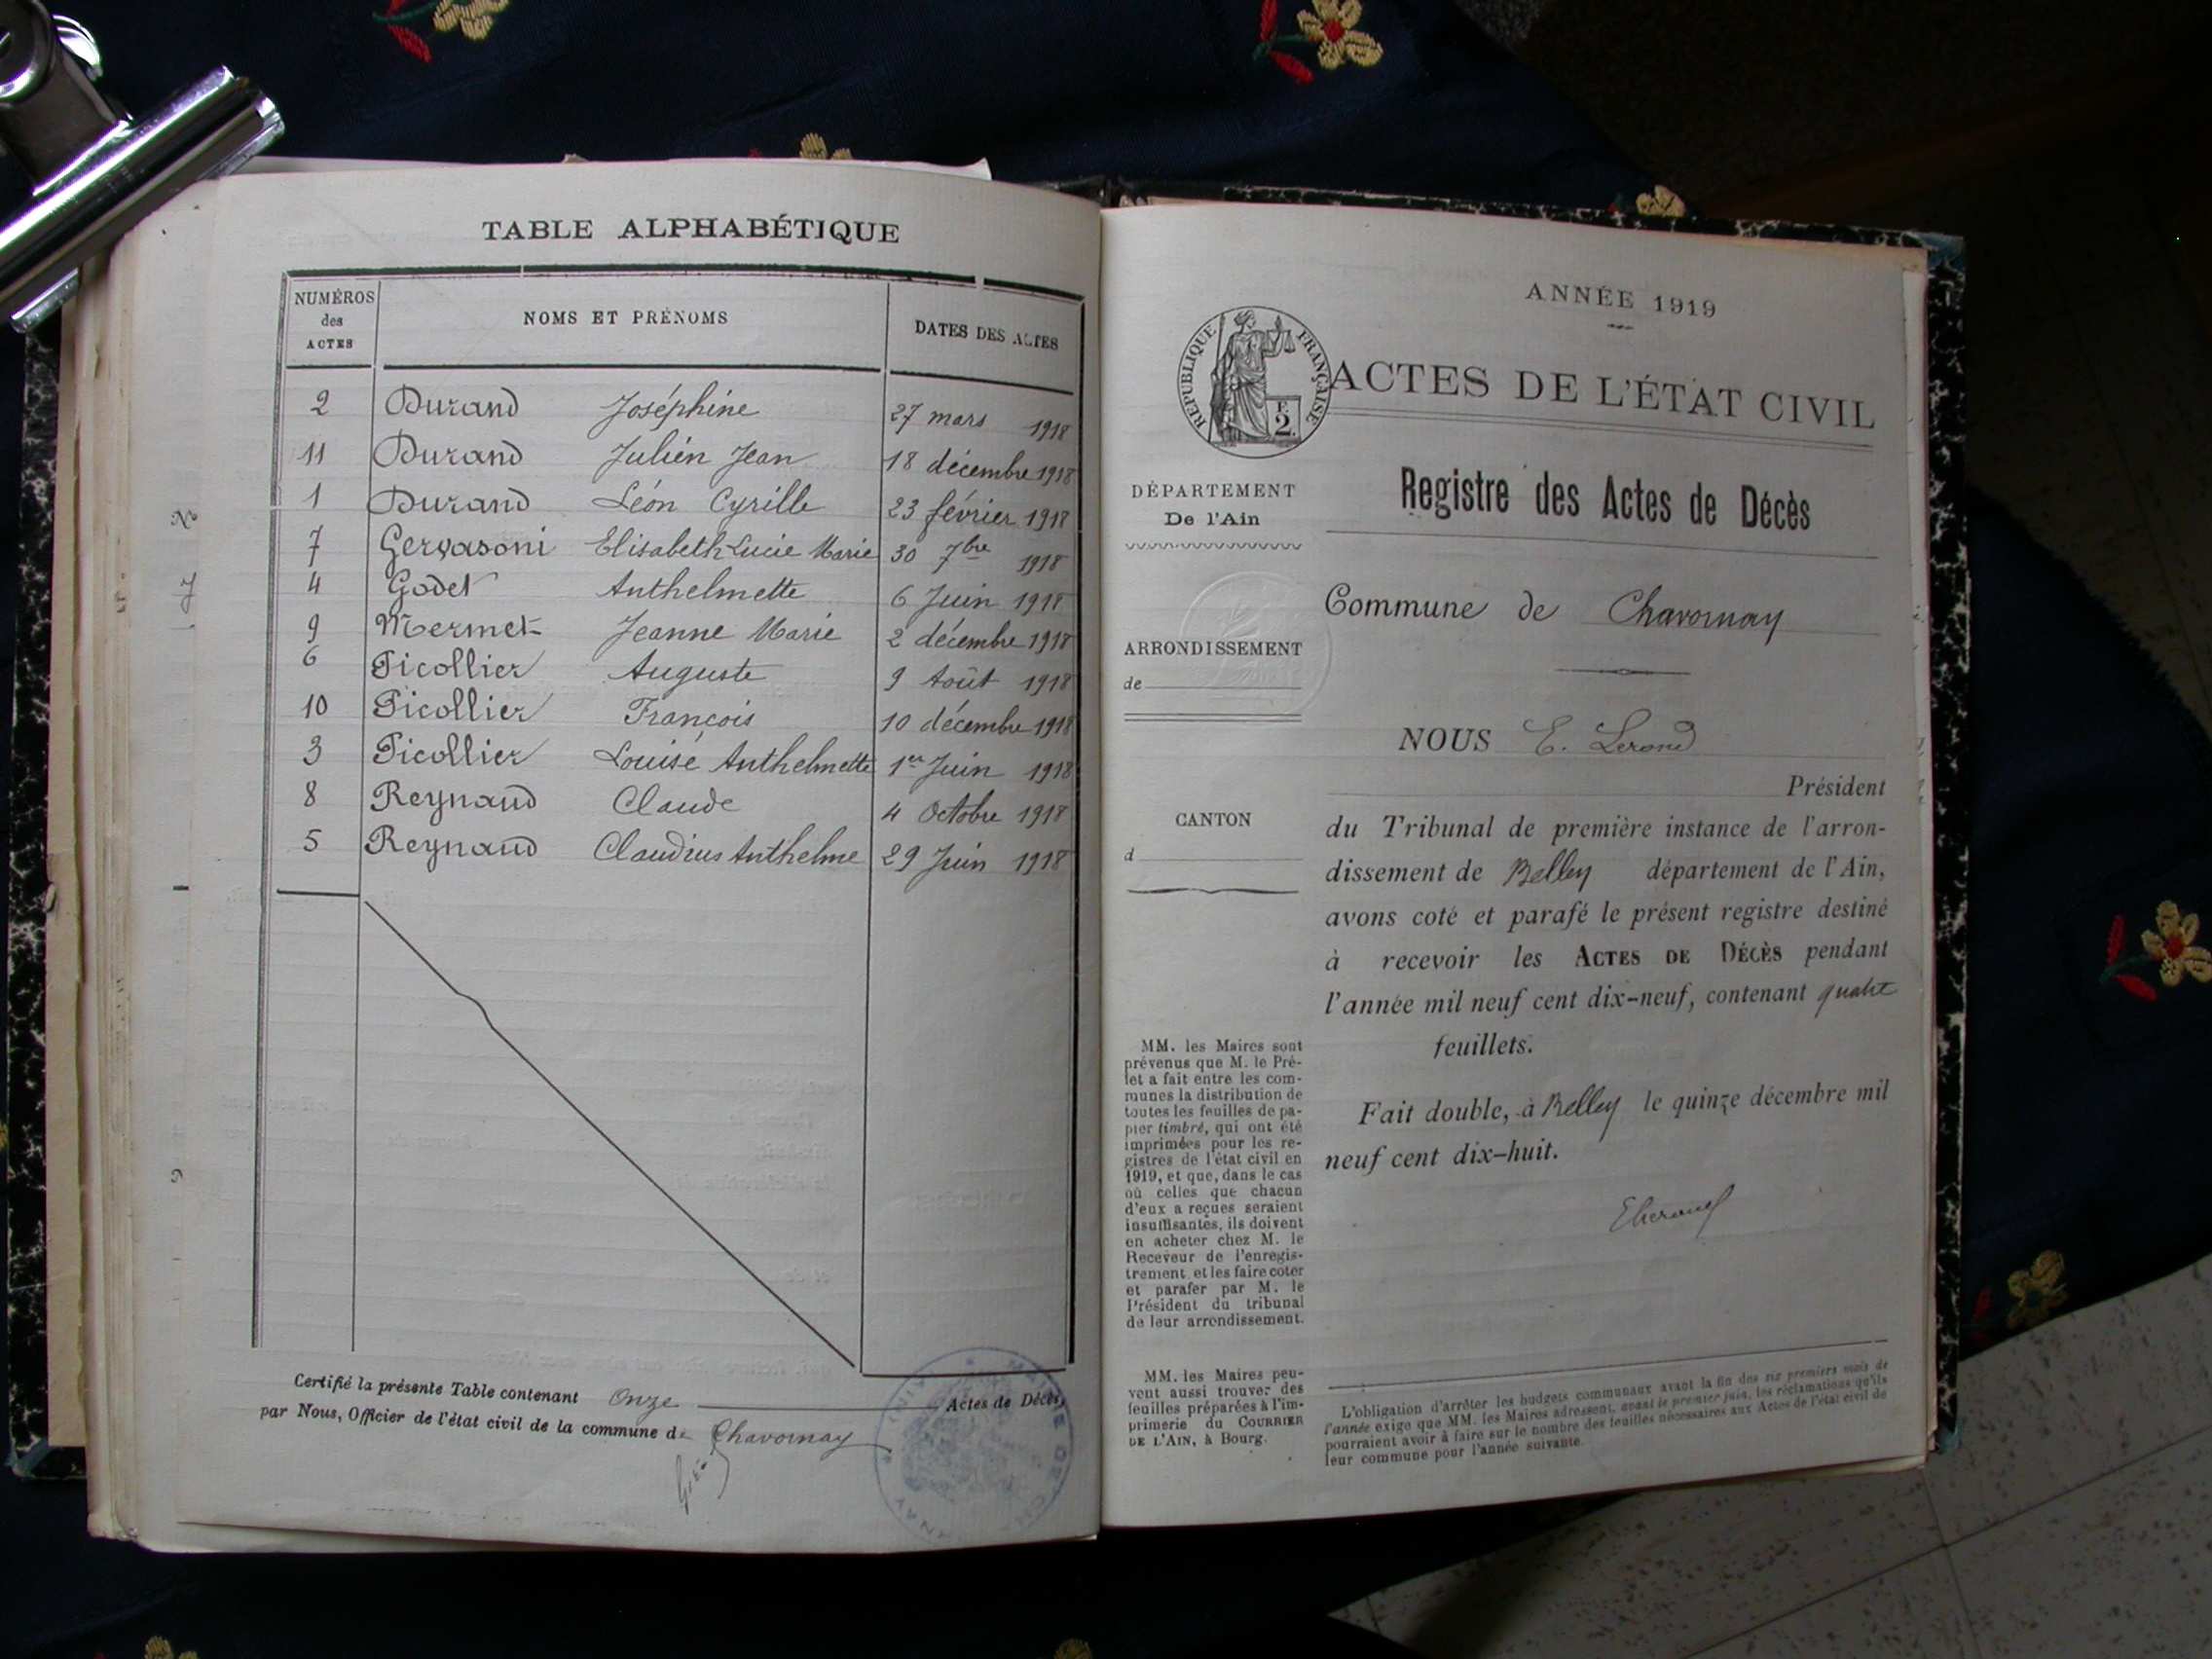 TABLE ALPHABÉTIQUE
NUMÉROS des ACTES
NOMS ET PRÉNOMS
DATES DES ACTES
2 Durand Joséphine 27 mars 1918
11 Durand Julien Jean 18 décembre 1918
1 Durand Léon Cyrille 23 février 1918
7 Gervasoni Elisabeth Lucie Marie 30 7bre 1918
4 Godet Anthelmette 6 Juin 1918
9 Mermet Jeanne Marie 2 décembre 1918
6 Picollier Auguste 9 Août 1918
10 Picollier François 10 décembre 1918
3 Picollier Louise Anthelmette 1er Juin 1918
8 Reynaud Claude 4 Octobre 1918
5 Reynaud Claudius Anthelme 29 Juin 1918
Certifié la présente Table contenant Onze Actes de Décès
par Nous, Officier de l'état civil de la commune de Chavornay
ANNÉE 1919
RÉPUBLIQUE FRANÇAISE
F. 2.
ACTES DE L'ÉTAT CIVIL
DÉPARTEMENT
De l'Ain
ARRONDISSEMENT
de
CANTON
d
MM. les Maires sont
prévenus que M. le Pré-
fet a fait entre les com-
munes la distribution de
toutes les feuilles de pa-
pier timbré, qui ont été
imprimées pour les re-
gistres de l'état civil en
1919, et que, dans le cas
où celles que chacun
d'eux a reçues seraient
insuffisantes, ils doivent
en acheter chez M. le
Receveur de l'enregis-
trement et les faire coter
et parafer par M. le
Président du tribunal
de leur arrondissement.
MM. les Maires peu-
vent aussi trouver des
feuilles préparées à l'im-
primerie du COURRIER
DE L'AIN, à Bourg.
Registre des Actes de Décès
Commune de Chavornay
NOUS E. Lerond
Président
du Tribunal de première instance de l'arron-
dissement de Belley département de l'Ain,
avons coté et parafé le présent registre destiné
à recevoir les ACTES DE DÉCÈS pendant
l'année mil neuf cent dix-neuf, contenant quatre
feuillets.
Fait double, à Belley le quinze décembre mil
neuf cent dix-huit.
L'obligation d'arrêter les budgets communaux avant la fin des six premiers mois de
l'année exige que MM. les Maires adressent, avant le premier juin, les réclamations qu'ils
pourraient avoir à faire sur le nombre des feuilles nécessaires aux Actes de l'état civil de
leur commune pour l'année suivante.